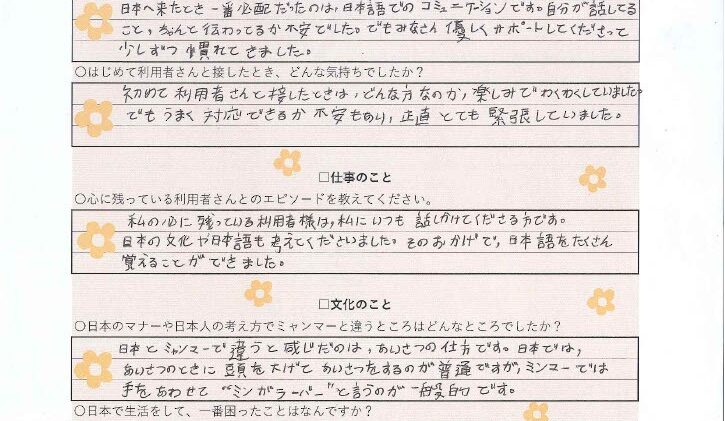 日本へ来たとき一番心配だったのは、日本語でのコミュニケーションです。自分が話してる
こと、ちゃんと伝わってるか不安でした。でもみなさん優しくサポートしてくださって
少しずつ慣れてきました。
○はじめて利用者さんと接したとき、どんな気持ちでしたか?
初めて利用者さんと接したときは、どんな方なのか、楽しみでわくわくしていました
でもうまく対応できるか不安もあり、正直とても緊張していました。
□仕事のこと
○心に残っている利用者さんとのエピソードを教えてください。
私の心に残っている利用者様は、私にいつも話しかけてくださる方です。
日本の文化や日本語も考えてくださいました。そのおかげで、日本語をたくさん
覚えることができました。
□文化のこと
○日本のマナーや日本人の考え方でミャンマーと違うところはどんなところでしたか?
日本とミャンマーで違うと感じだのは、あいさつの仕方です。日本では、
あいさつのときに頭を下げてあいさつをするのが普通ですが、ミンマーでは
手をあわせて “ミンガラーバー”と言うのが一般的です。
○日本で生活をして、一番困ったことはなんですか?